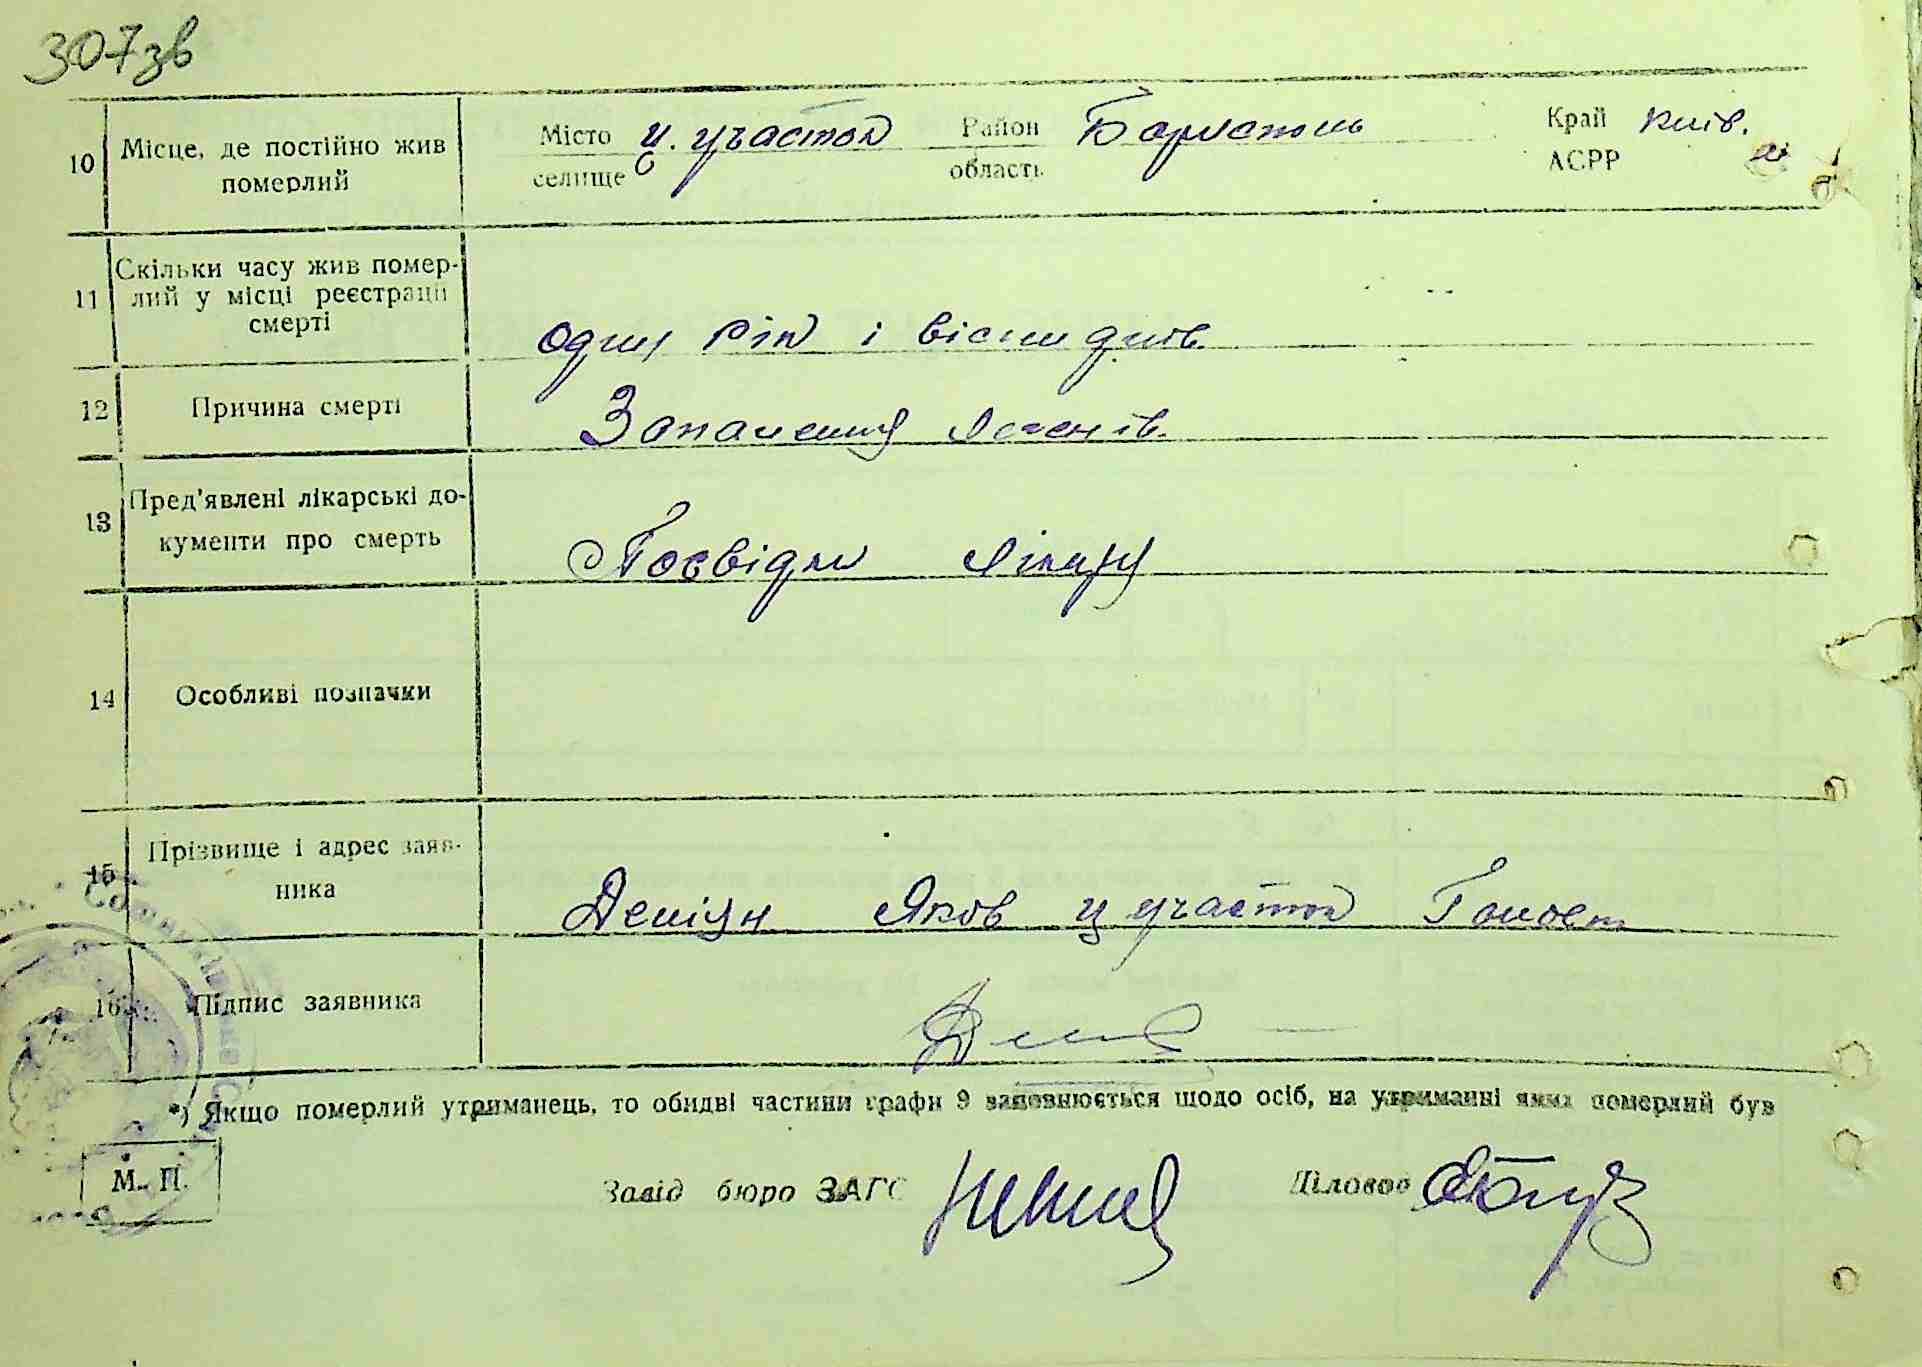 307зв
10 Місце, де постійно жив померлий Місто селище ц. участок Район область Бориспіль Край АСРР Київ.
11 Скільки часу жив помер-
лий у місці реєстрації
смерті
один рік і вісім днів.
12 Причина смерті Запалення легенів.
13 Пред'явлені лікарські до-
кументи про смерть
Посвідка лікаря
14 Особливі позначки
15 Прізвище і адрес заяв-
ника
Яков ц участок
16 Підпис заявника
*) Якщо померлий утриманець, то обидві частини графи 9 заповнюється щодо осіб, на утриманні яких померлий був
М. П.
Завід бюро ЗАГС Діловод